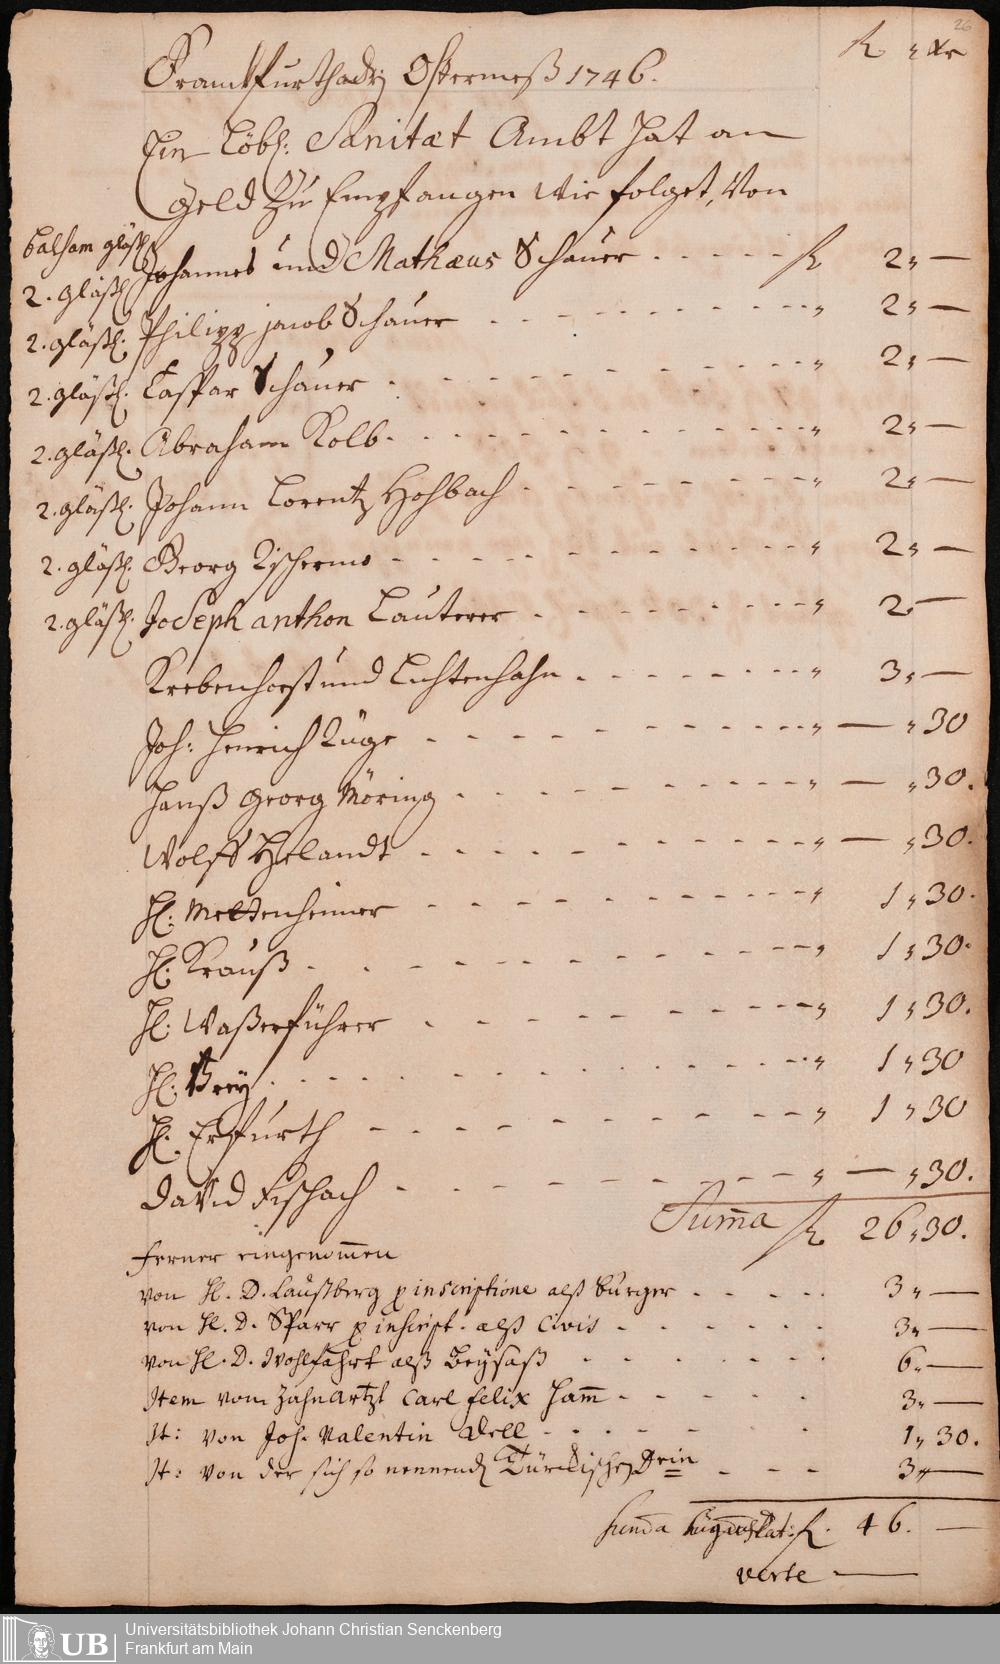 26
fl " Xr
Franckfurth adj Ostermeß 1746.
Ein Löbl: Sanitæt Ambt hat an
Geld Zu Empfangen wie folget, Von
balsam gläßl
2. gläßl Johannes und Mathæus Schauer . . . . . fl 2 " —
2. gläßl. Philipp jacob Schauer - - - - - - - - - " 2 " —
2. gläßl. Caspar Schauer - - - - - - - - - " 2 " —
2. gläßl. Abraham Kolb - - - - - - - - - " 2 " —
2. gläßl. Johann Lorentz Hohbach - - - - - - - - " 2 " —
2. gläßl. Georg - - - - - - - - - " 2 " —
2. gläßl. Joseph anthon Lauterer - - - - - - - - " 2 " —
Krebenhorst und Lichtenhahn - - - - - - - - " 3 " —
Joh: Henrich Rüge - - - - - - - - - " — " 30
Hanß Georg Möring - - - - - - - - - " — " 30.
Wolff Helandt - - - - - - - - - " — " 30.
H. Mettenheimer - - - - - - - - - " 1 " 30.
H. Krauß - - - - - - - - - " 1 " 30.
H. Waßerführer - - - - - - - - - " 1 " 30.
H. Brey - - - - - - - - - " 1 " 30
H. Erfurth - - - - - - - - - " 1 " 30
David Fischach - - - - - - - - - " — " 30.
Sum̄a fl 26 " 30.
Ferner eingenom̄en
von H. D. Laußberg p inscriptione alß burger - - - - 3 " —
von H. D. Sparr p inscript. alß Civis - - - - - - 3 " —
von H. D. Wohlfahrt alß Beysaß - - - - - - 6 " —
Item vom Zahnartzt Carl Felix Ham̄ - - - - - 3 " —
It: von Joh. Valentin Dell - - - - - - 1 " 30.
It: von der sich so nennend Türckischen Drin - - - 3 " —
Sum̄a fl. 46. —
verte —
UB
Universitätsbibliothek Johann Christian Senckenberg
Frankfurt am Main